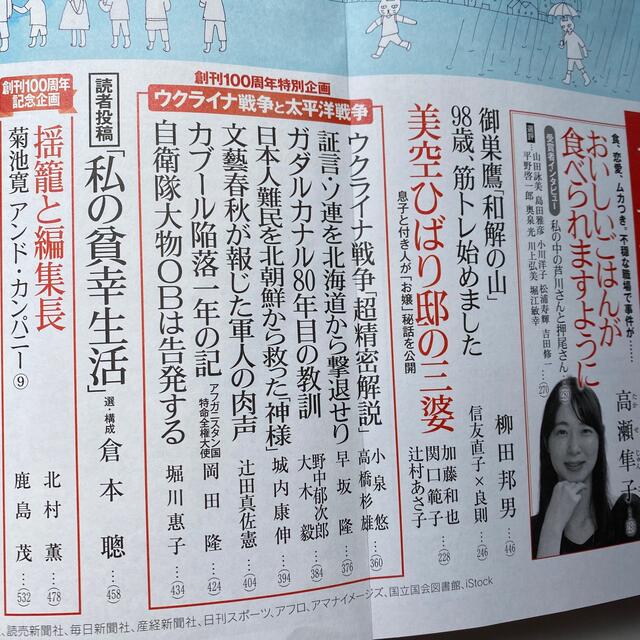 食、恋愛、ムカつき。不穏な職場で事件が……
おいしいごはんが
食べられますように
高瀬隼子
受賞者インタビュー
私の中の芦川さんと押尾さん
選評
山田詠美 島田雅彦 小川洋子 松浦寿輝 吉田修一
平野啓一郎 奥泉光 川上弘美 堀江敏幸
…270
御巣鷹「和解の山」
柳田邦男 …446
98歳、筋トレ始めました
信友直子×良則 …246
美空ひばり邸の三婆
息子と付き人が「お嬢」秘話を公開
加藤和也
関口範子
辻村あさ子 …228
創刊100周年特別企画
ウクライナ戦争と太平洋戦争
ウクライナ戦争「超精密解説」
小泉悠
高橋杉雄 …360
証言・ソ連を北海道から撃退せり
早坂隆 …376
ガダルカナル80年目の教訓
野中郁次郎
大木毅 …384
日本人難民を北朝鮮から救った「神様」
城内康伸 …394
文藝春秋が報じた軍人の肉声
辻田真佐憲 …404
カブール陥落一年の記
アフガニスタン国
特命全権大使
岡田隆 …424
自衛隊大物OBは告発する
堀川惠子 …434
読者投稿
「私の貧幸生活」
選・構成 倉本聰 …458
創刊100周年
記念企画
揺籠と編集長
北村薫 …478
菊池寛 アンド・カンパニー⑨
鹿島茂 …532
、読売新聞社、毎日新聞社、産経新聞社、日刊スポーツ、アフロ、アマナイメージズ、国立国会図書館、iStock